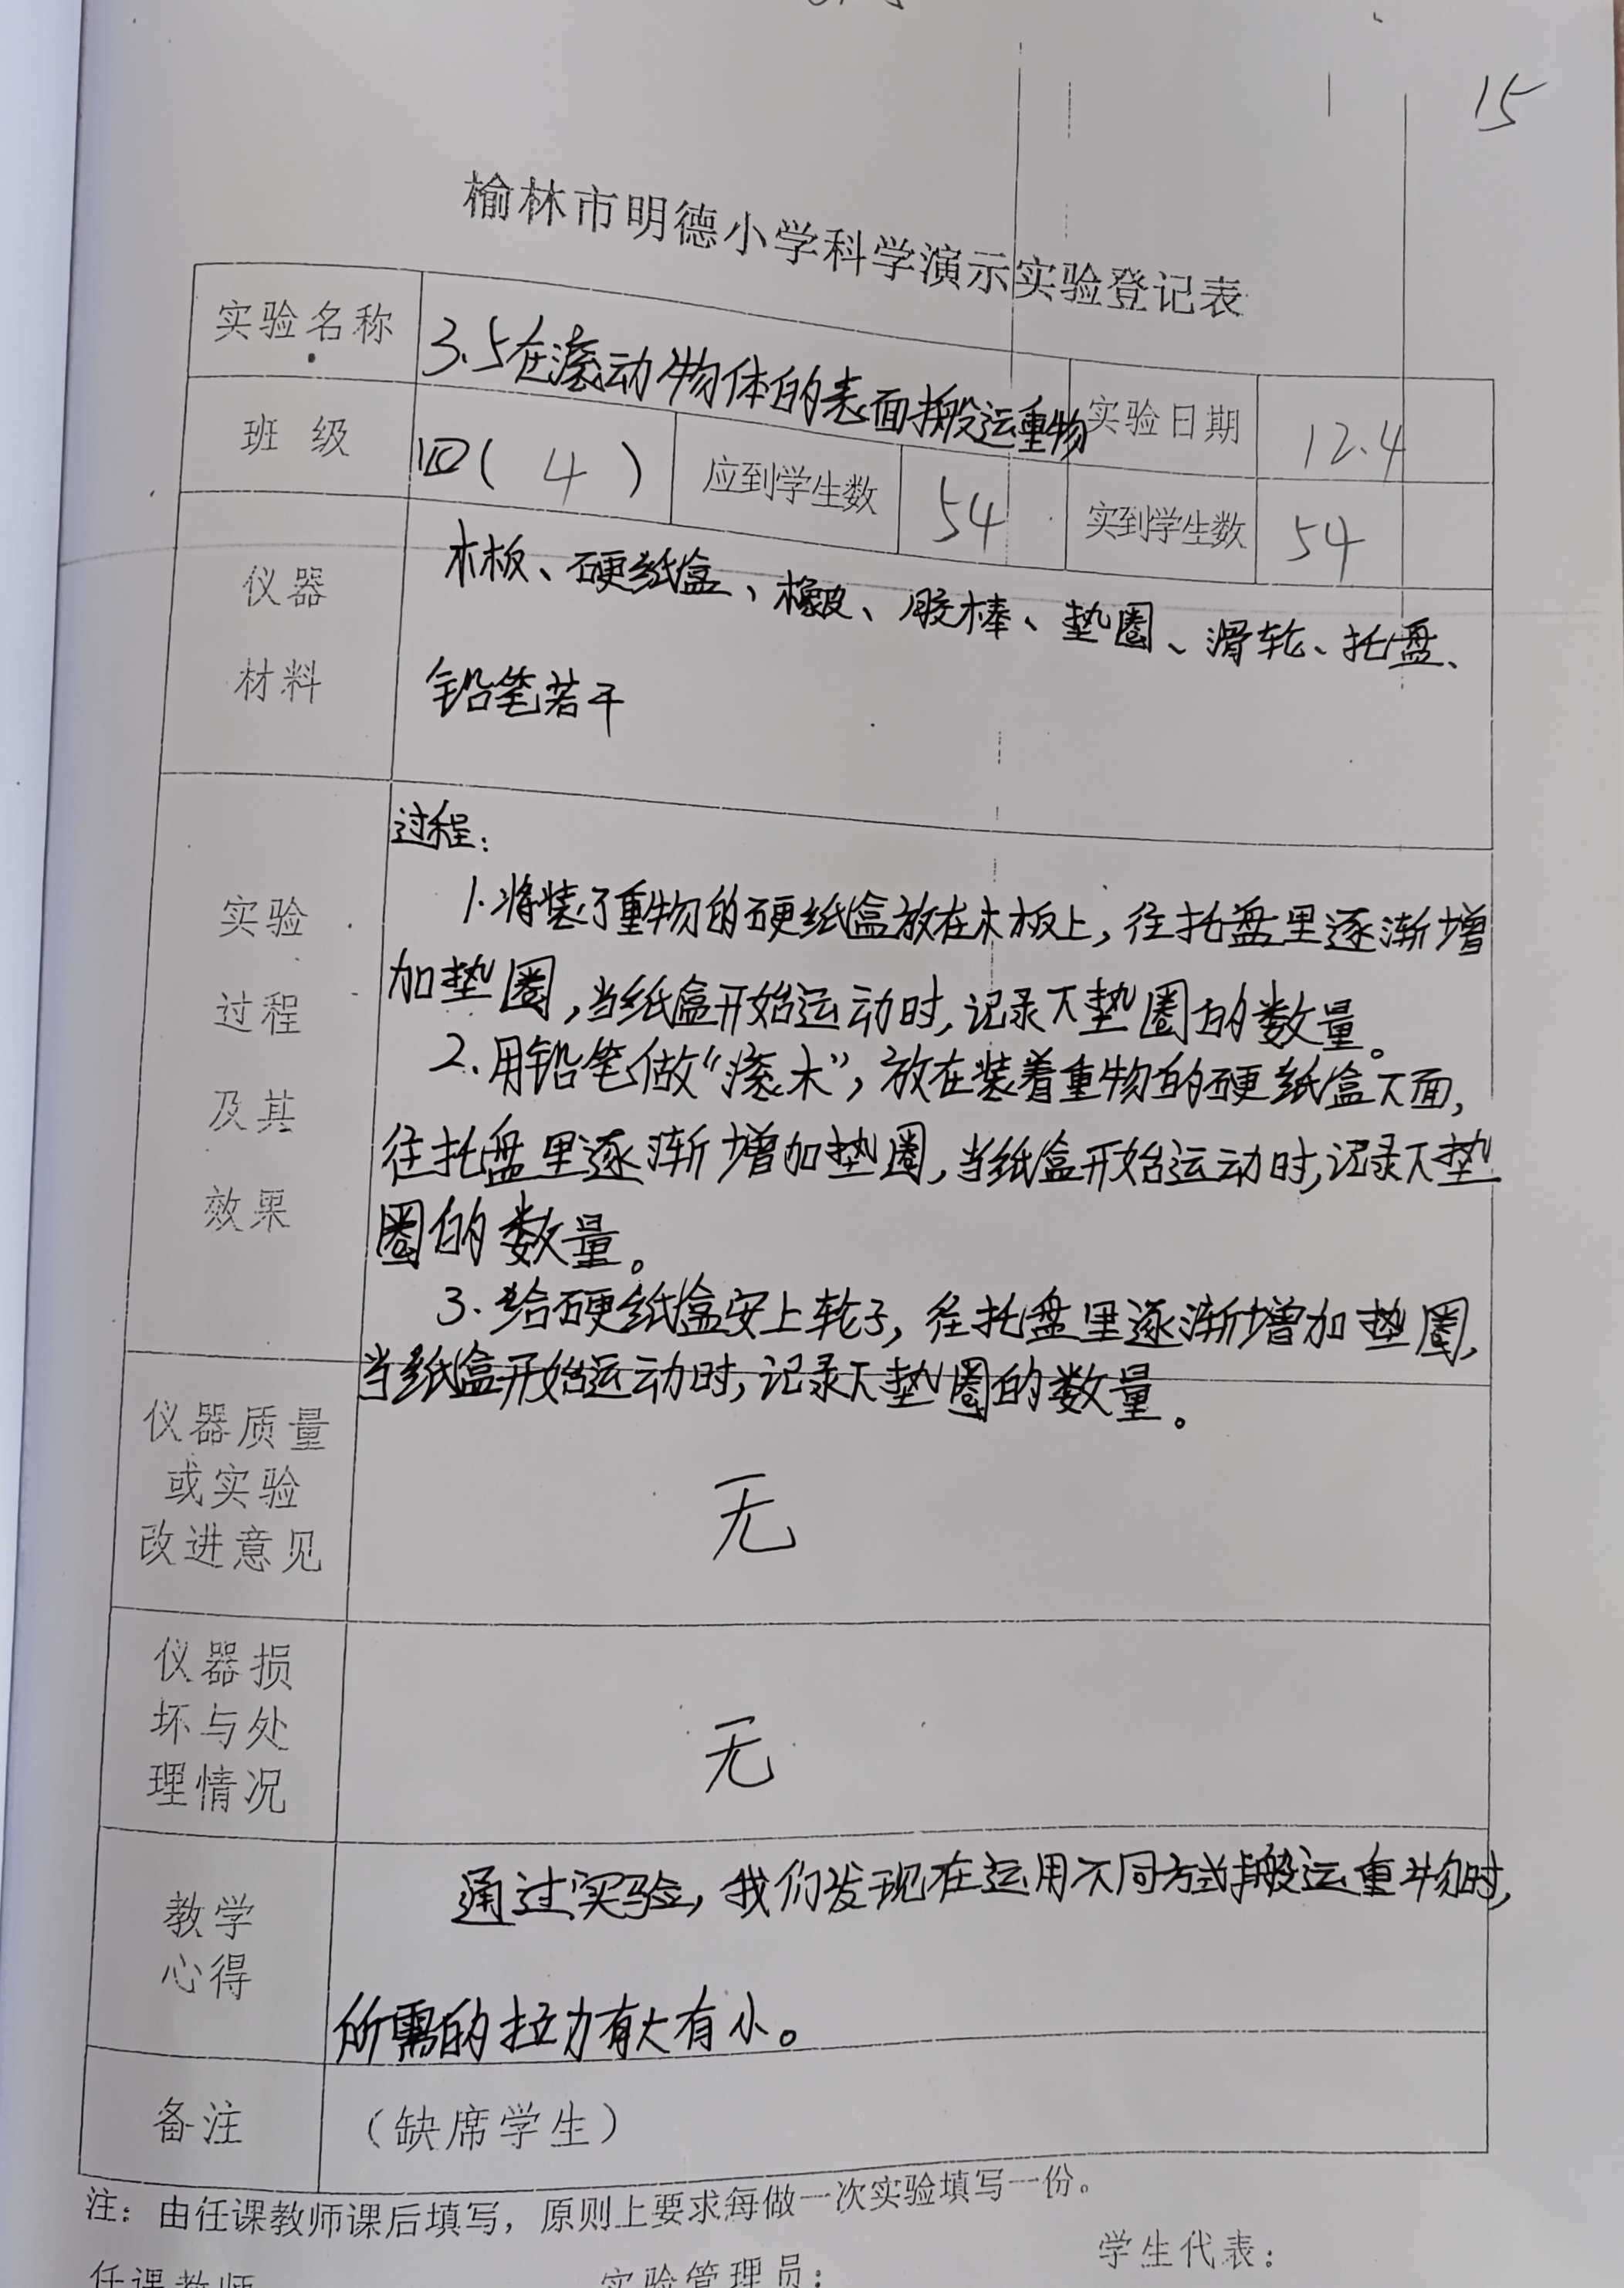 15
榆林市明德小学科学演示实验登记表
实验名称 3.5在滚动物体的表面搬运重物 实验日期 12.4
班 级 四( 4 ) 应到学生数 54 实到学生数 54
仪器 木板、硬纸盒、橡皮、胶棒、垫圈、滑轮、托盘、
材料 铅笔若干
过程:
实验 1.将装了重物的硬纸盒放在木板上,往托盘里逐渐增
过程 加垫圈,当纸盒开始运动时,记录下垫圈的数量。
及其 2.用铅笔做“滚木”,放在装着重物的硬纸盒下面,
往托盘里逐渐增加垫圈,当纸盒开始运动时,记录下垫
效果 圈的数量。
3.给硬纸盒安上轮子,往托盘里逐渐增加垫圈,
当纸盒开始运动时,记录下垫圈的数量。
仪器质量
或实验 无
改进意见
仪器损
坏与处 无
理情况
教学 通过实验,我们发现在运用不同方式搬运重物时,
心得
所需的拉力有大有小。
备注 (缺席学生)
注:由任课教师课后填写,原则上要求每做一次实验填写一份。
任课教师 实验管理员: 学生代表: